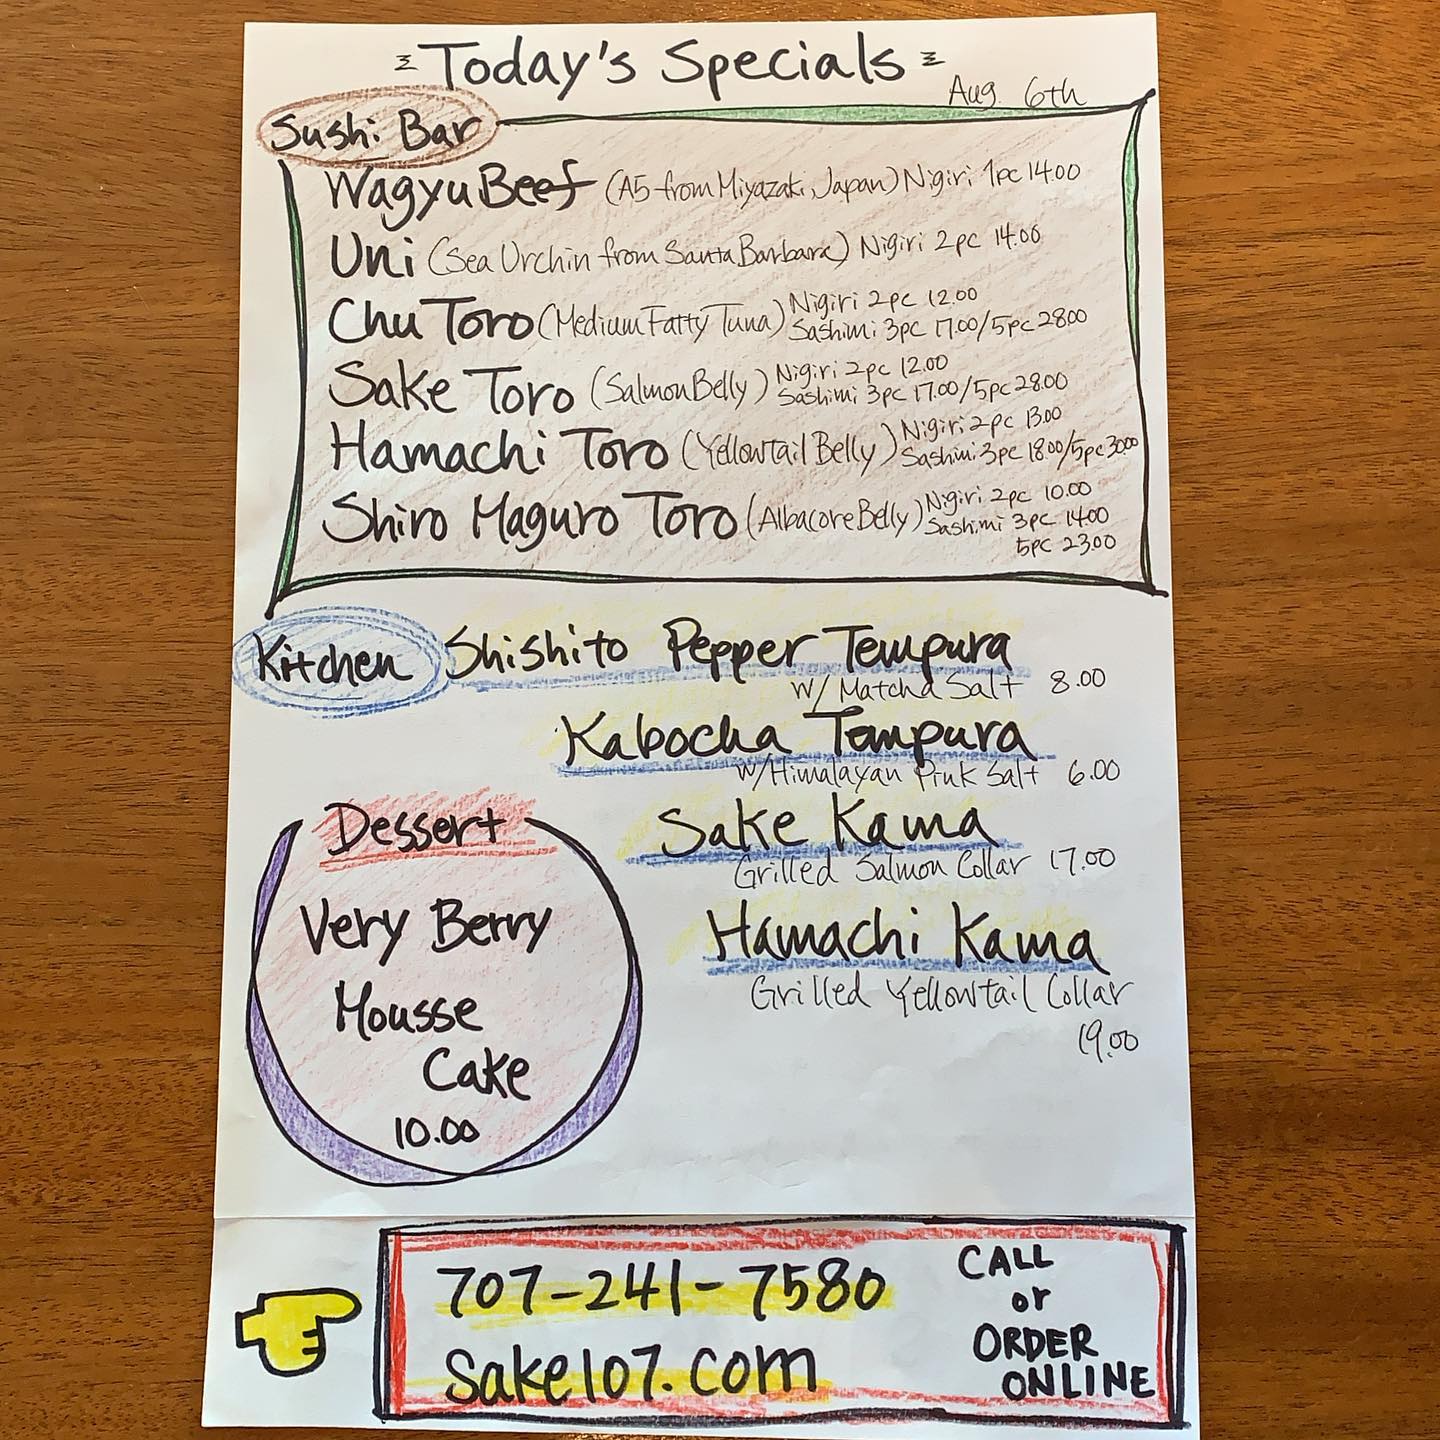 Today's Specials
Aug. 6th
Sushi Bar
Wagyu Beef (A5 from Miyazaki, Japan) Nigiri 1pc 14.00
Uni (Sea Urchin from Santa Barbara) Nigiri 2pc 14.00
Chu Toro (Medium Fatty Tuna) Nigiri 2pc 12.00
Sashimi 3pc 17.00/5pc 28.00
Sake Toro (Salmon Belly) Nigiri 2pc 12.00
Sashimi 3pc 17.00/5pc 28.00
Hamachi Toro (Yellowtail Belly) Nigiri 2pc 13.00
Sashimi 3pc 18.00/5pc 30.00
Shiro Maguro Toro (Albacore Belly) Nigiri 2pc 10.00
Sashimi 3pc 14.00
5pc 23.00
Kitchen
Shishito Pepper Tempura
w/ Matcha Salt 8.00
Kabocha Tempura
w/ Himalayan Pink Salt 6.00
Sake Kama
Grilled Salmon Collar 17.00
Hamachi Kama
Grilled Yellowtail Collar
19.00
Dessert
Very Berry
Mousse
Cake
10.00
707-241-7580
Sake107.com
CALL
or
ORDER
ONLINE